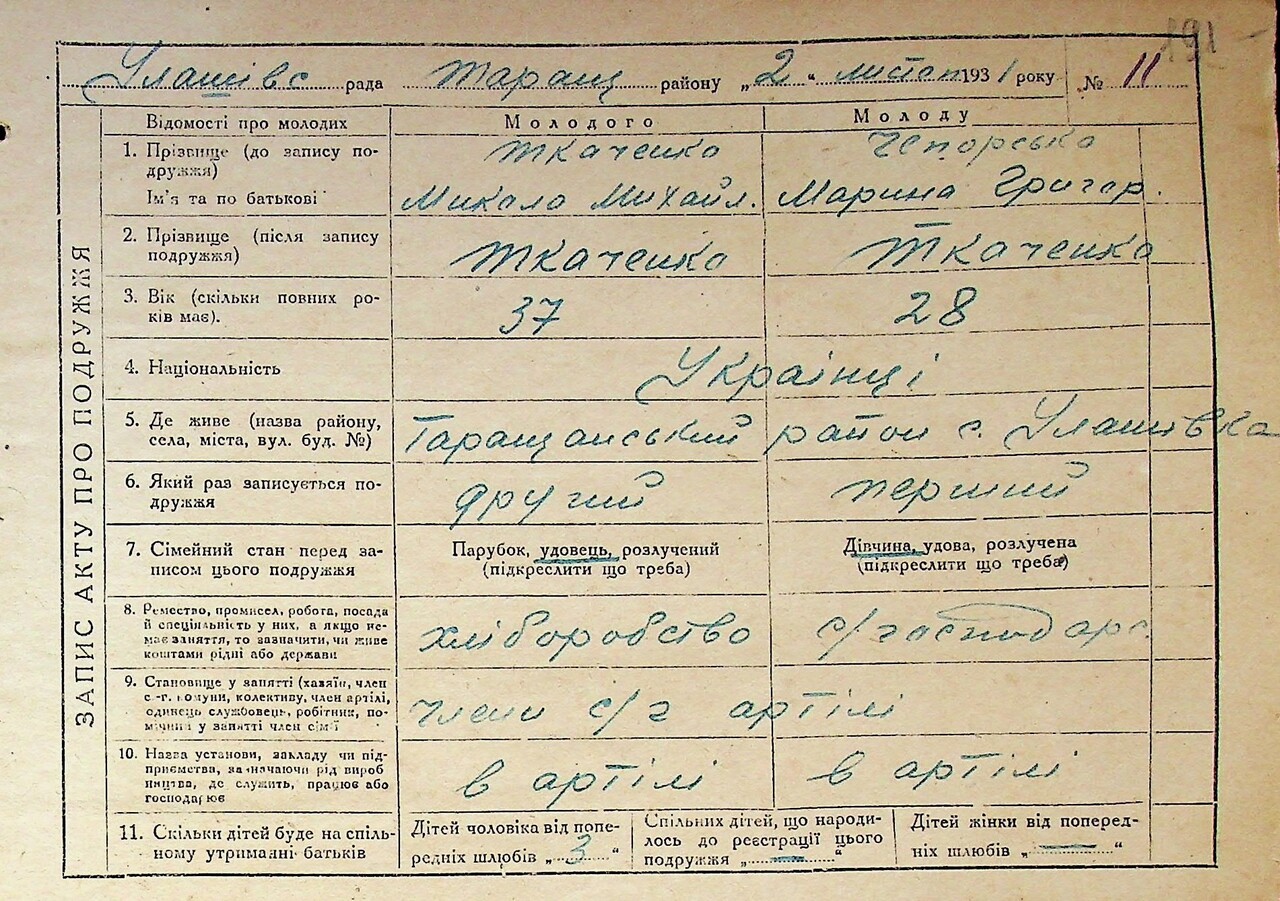 191
Улашівс рада Таращ району „2“ листоп 1931 року № 11
ЗАПИС АКТУ ПРО ПОДРУЖЖЯ
Відомості про молодих Молодого Молоду
1. Прізвище (до запису по- Ткаченко Чепорська
дружжя)
Ім'я та по батькові Микола Михайл. Марина Григор.
2. Прізвище (після запису Ткаченко Ткаченко
подружжя)
3. Вік (скільки повних ро- 37 28
ків має).
4. Національність Українці
5. Де живе (назва району, Таращанський район с. Улашівка
села, міста, вул. буд. №)
6. Який раз записується по- другий перший
дружжя
7. Сімейний стан перед за- Парубок, удовець, розлучений Дівчина, удова, розлучена
писом цього подружжя (підкреслити що треба) (підкреслити що треба)
8. Ремество, промисел, робота, посада
й спеціяльність у них, а якщо не- хліборобство с/господарс.
має заняття, то зазначити, чи живе
коштами рідні або держави
9. Становище у занятті (хазяїн, член
с.-г. комуни, колективу, член артілі, члени с/г артілі
одинець службовець, робітник, по-
мічний у занятті член сім'ї
10. Назва установи, закладу чи під-
приємства, зазначаючи рід вироб в артілі в артілі
ництва, де служить, працює або
господарює
11. Скільки дітей буде на спіль- Дітей чоловіка від попе- Спільних дітей, що народи- Дітей жінки від поперед-
ному утриманні батьків редніх шлюбів „3“ лось до реєстрації цього ніх шлюбів „—“
подружжя „—“